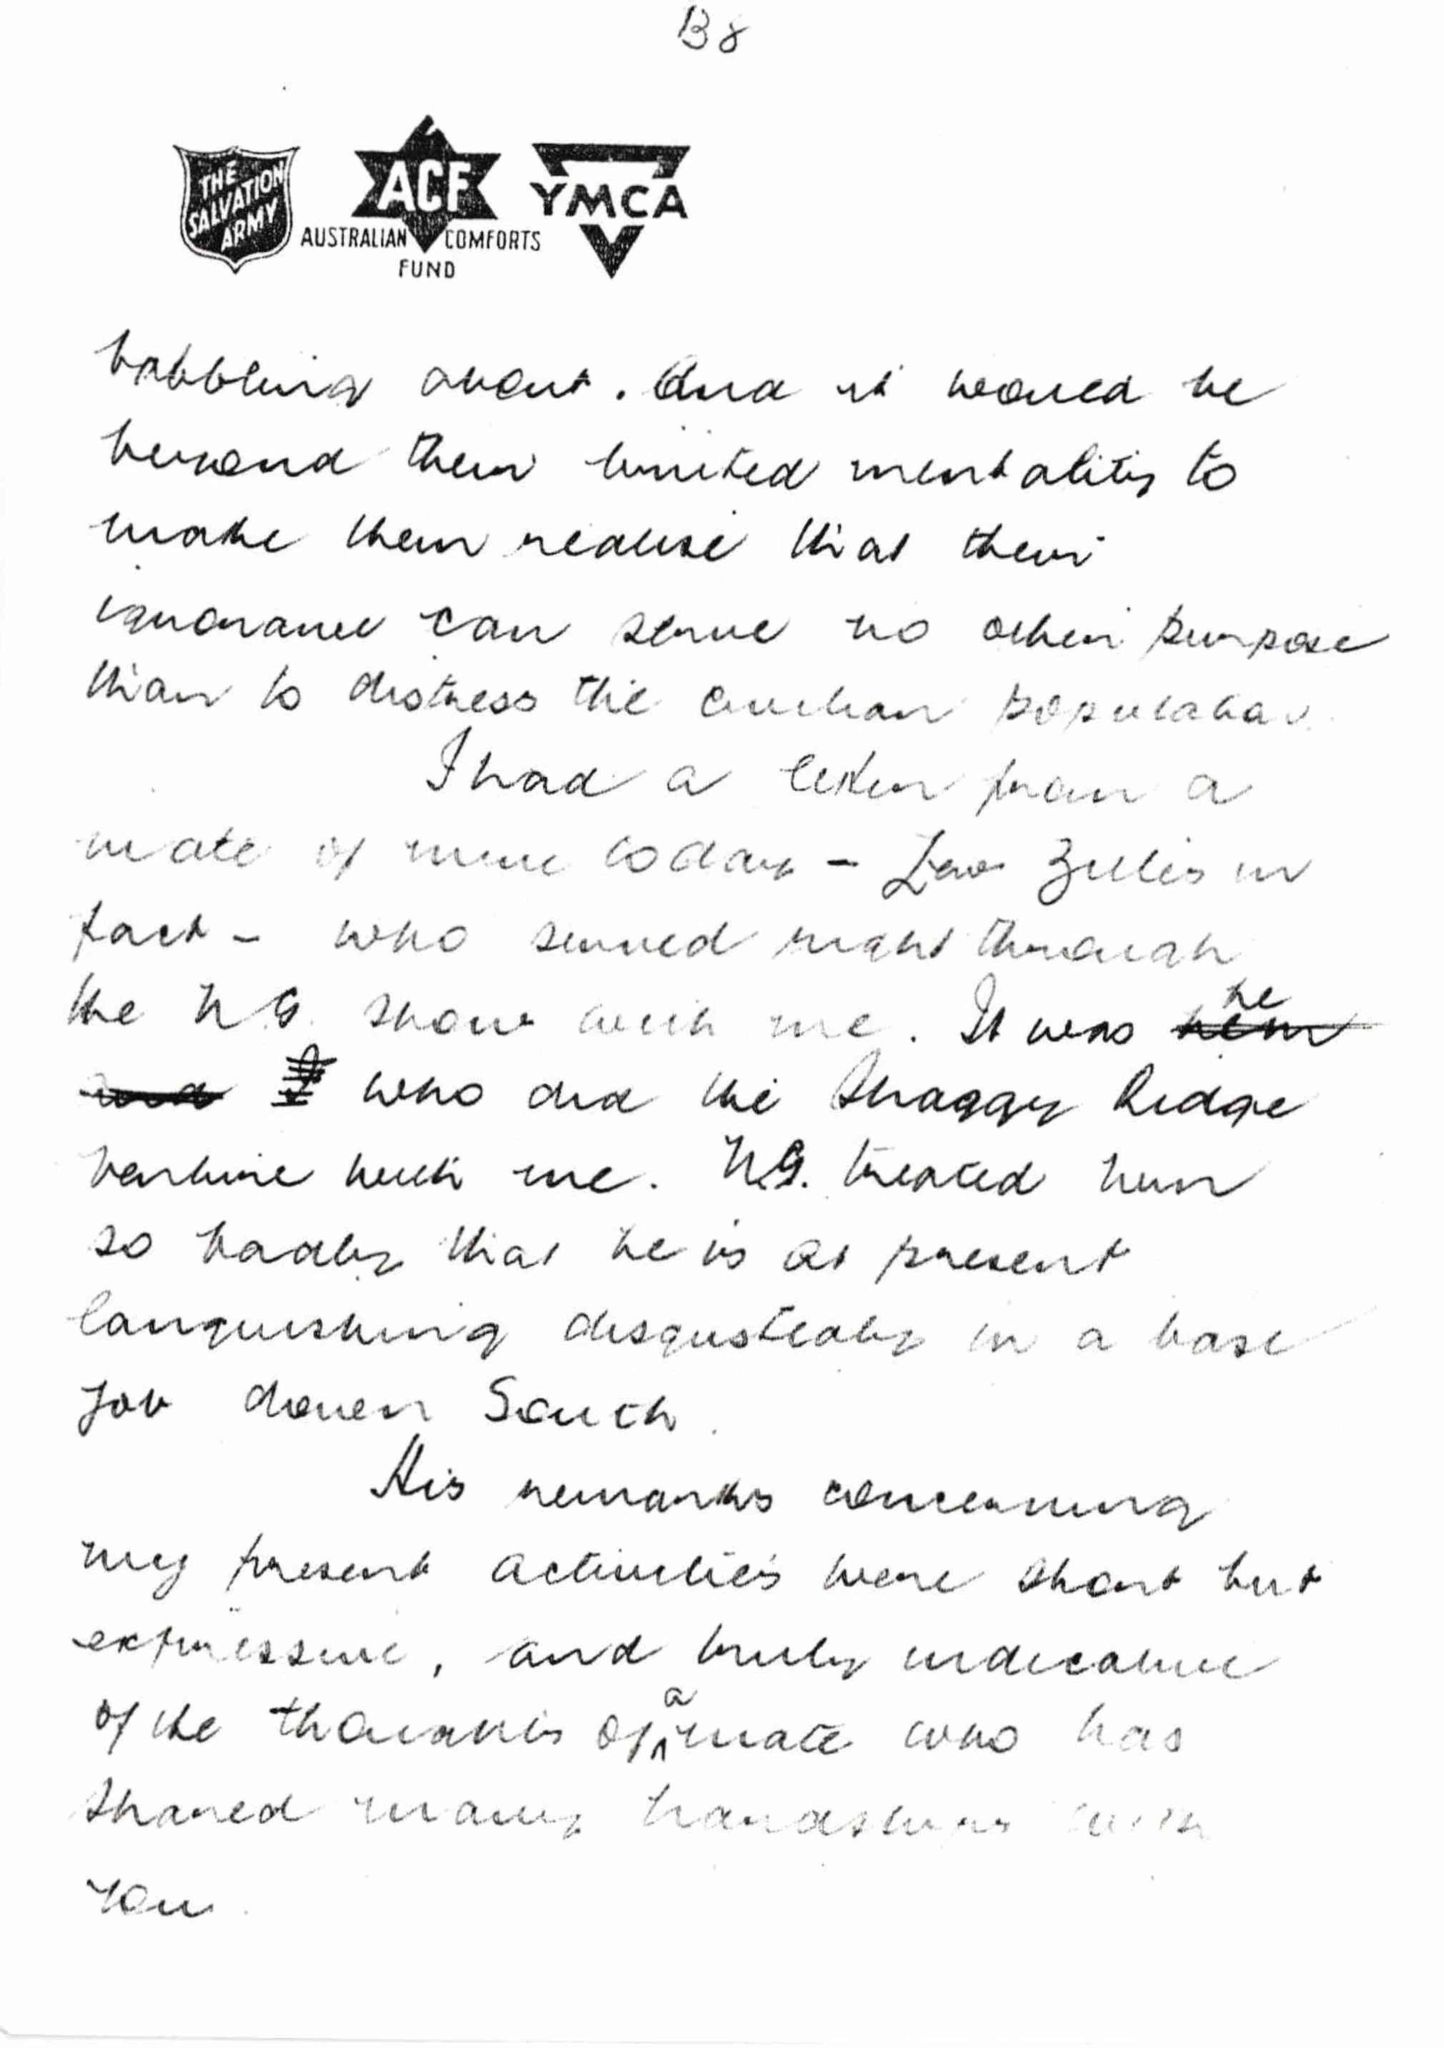 B8
THE
SALVATION
ARMY
ACF
AUSTRALIAN COMFORTS
FUND
YMCA
babbling about. And it would be
beyond their limited mentality to
make them realise that their
ignorance can serve no other purpose
than to distress the civilian population.
I had a letter from a
mate of mine today - in
fact - who served right through
the N.G. show with me. It was he
who did the Shaggy Ridge
venture with me. N.G. treated him
so badly that he is at present
languishing disgustedly in a base
job down South.
His remarks concerning
my present activities were short but
expressive, and truly indicative
of the thoughts of a mate who has
shared many hardships with
you.